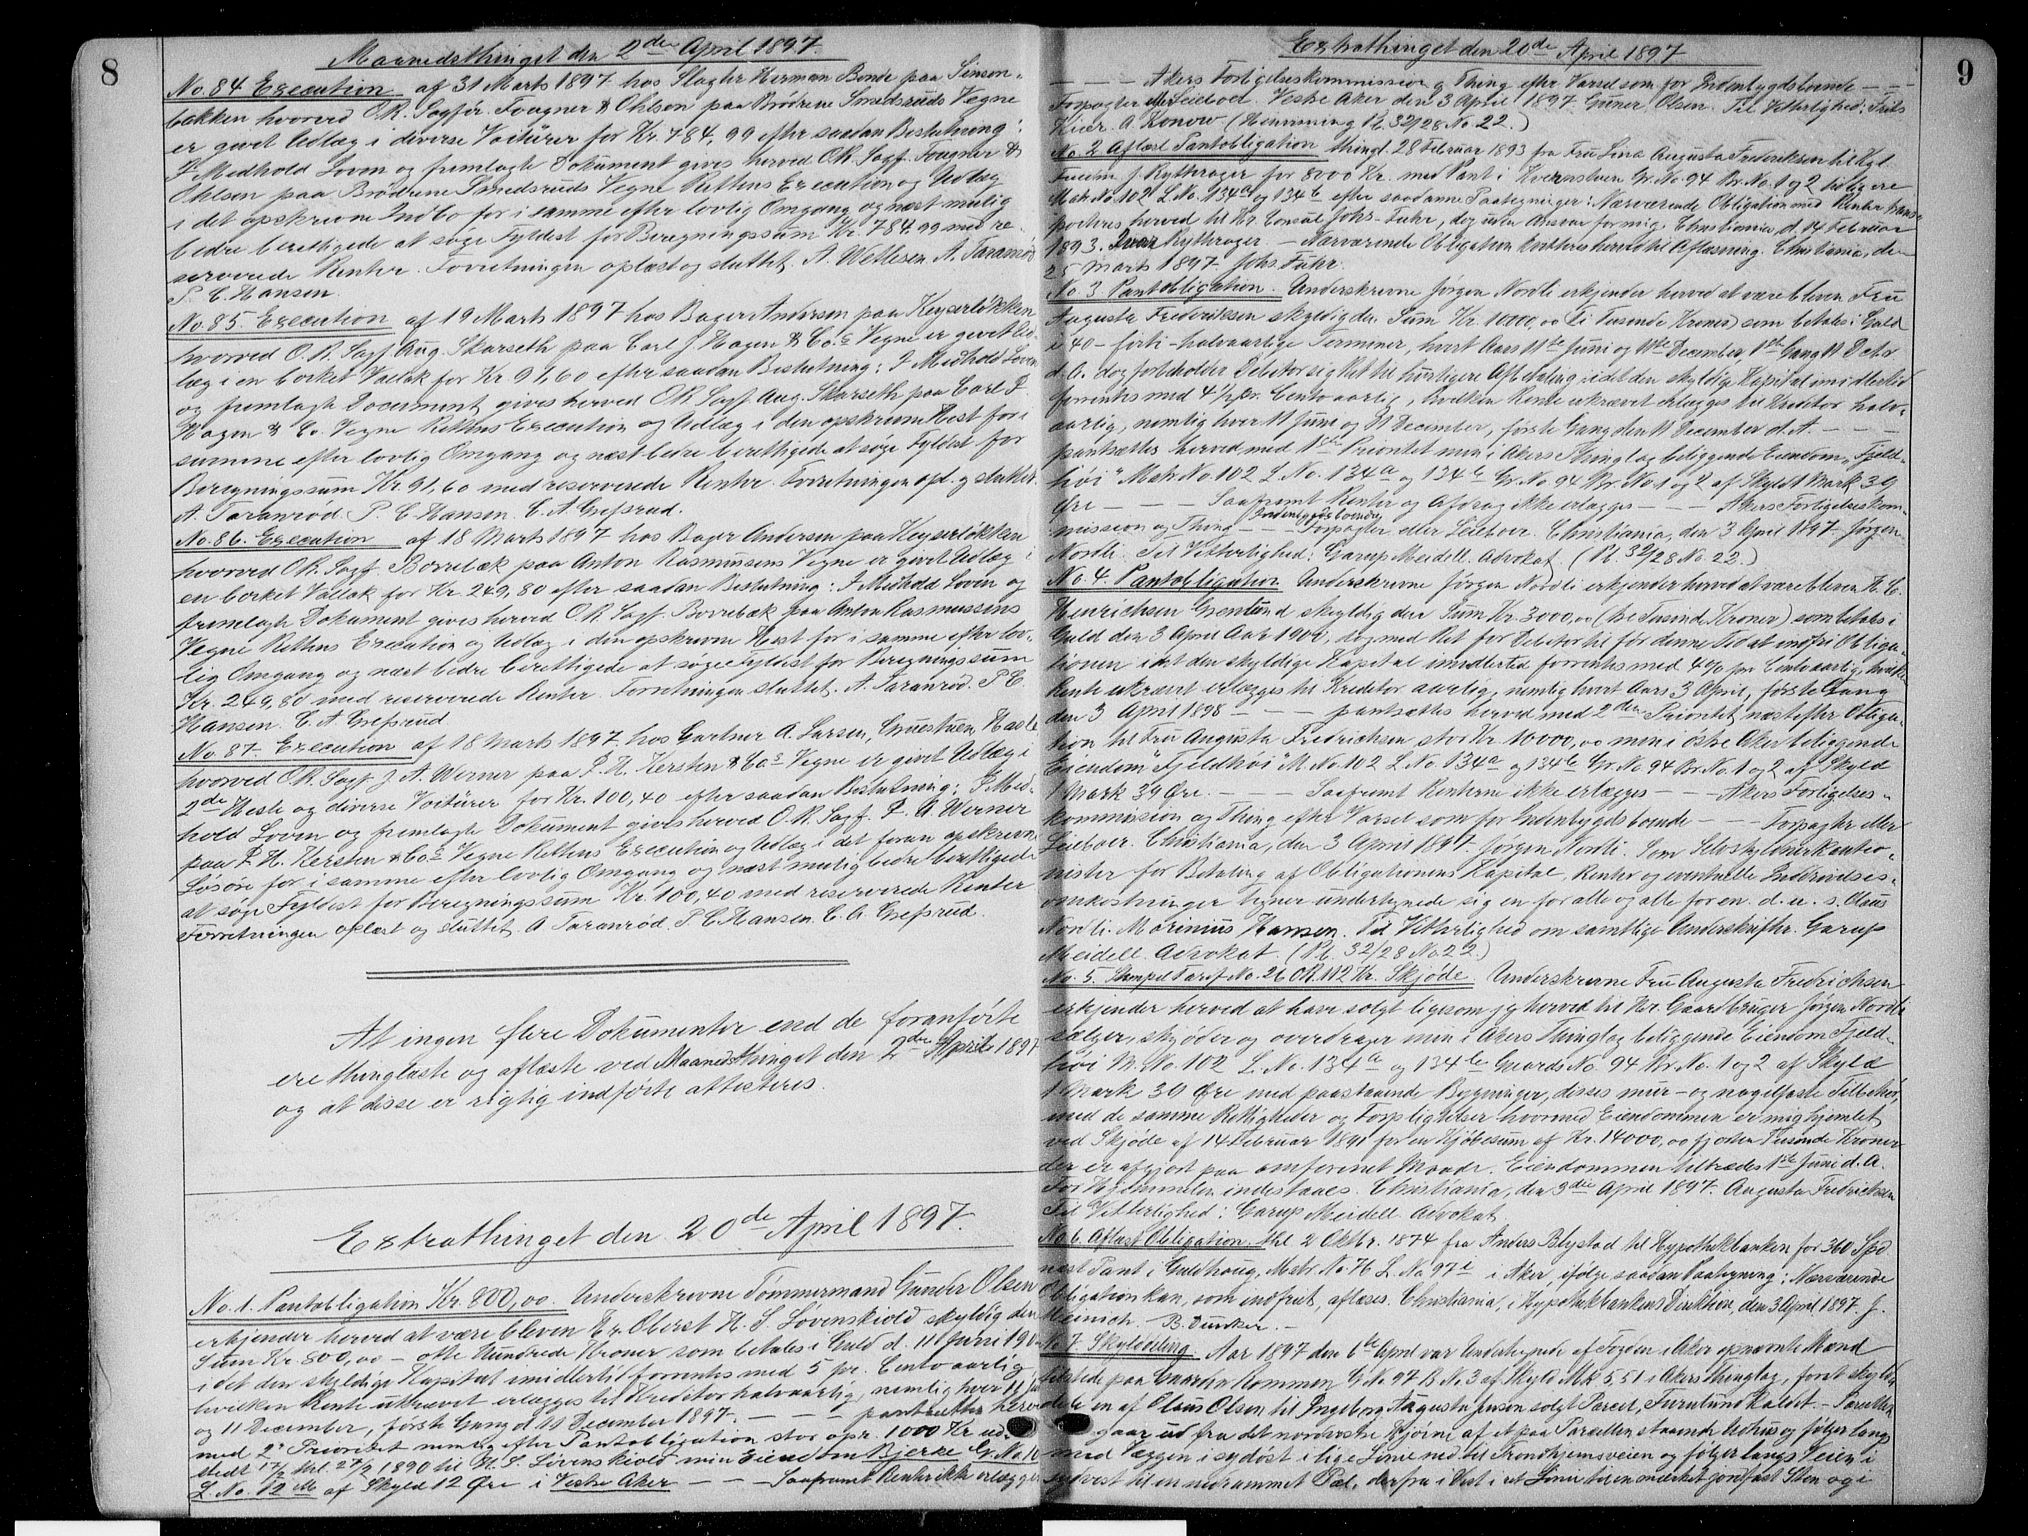 8
Maanedsthinget den 2den April 1897.
No. 84 Execution af 31 Marts 1897 hos Slagter Herman Bonde paa Sinsen-
bakken hvorved O.R. Sagfør. Fougner & Ohlson paa Brødrene Smedsruds Vegne
er givet Udlæg i diverse Voitürer for Kr. 784,99 efter saadan Beslutning:
I Medhold Loven og fremlagte Dokument gives herved O.R. Sagf. Fougner &
Ohlsen paa Brødrene Smedsruds Vegne Rettens Execution og Udlæg
i det opskrevne Indbo for i samme efter lovlig Omgang og næst mulig
bedre berettigede at søge Fyldest for Beregningssum Kr. 784.99 med re-
serverede Renter. Forretningen oplæst og sluttet. A. Wetlesen A. Taranrød
P. C. Hansen.
No. 85. Execution af 19 Marts 1897 hos Bager Andersen paa Keyserløkken
hvorved O.R. Sagf. Aug. Skarseth paa Carl J. Hagen & Co.s Vegne er givet Ud-
læg i en borket Vallak for Kr. 91,60 efter saadan Beslutning: I Medhold Loven
og fremlagte Document gives herved O.R. Sagf. Aug. Skarseth paa Carl J.
Hagen & Co. Vegne Rettens Execution og Udlæg i den opskrevne Hest for i
samme efter lovlig Omgang og næst bedre berettigede at søge Fyldest for
Beregningssum Kr. 91,60 med reserverede Renter. Forretningen opl. og sluttet.
A. Taranrød. P. C. Hansen. C. A. Grefsrud.
No. 86. Execution af 18 Marts 1897 hos Bager Andersen paa Keyserløkken
hvorved O.R. Sagf. Borrebæk paa Anton Rasmussens Vegne er givet Udlæg i
en borket Vallak for Kr. 249,80 efter saadan Beslutning: I Medhold Loven og
fremlagte Dokument gives herved O.R. Sagf. Borrebæk paa Anton Rasmussens
Vegne Rettens Execution og Udlæg i den opskrevne Hest for i samme efter lov-
lig Omgang og næst bedre berettigede at søge Fyldest for Beregningssum
Kr. 249,80 med reserverede Renter. Forretningen sluttet. A. Taranrød. P. C.
Hansen. C. A. Grefsrud
No. 87. Execution af 18 Marts 1897 hos Gartner A. Larsen, Gruestuen, Hasle
hvorved O.R. Sagf. J. A. Werner paa P. H. Kersten & Co.s Vegne er givet Udlæg i
2de Heste og diverse Voitürer for Kr. 100,40 efter saadan Beslutning: I Med-
hold Loven og fremlagte Dokument gives herved O.R. Sagf. J. A. Werner
paa P. H. Kersten & Co.s Vegne Rettens Execution og Udlæg i det foran opskrevne
Løsøre for i samme efter lovlig Omgang og næst mulig bedre berettigede
at søge Fyldest for Beregningssum Kr. 100,40 med reserverede Renter
Forretningen oplæst og sluttet. A Taranrød. P. C. Hansen. C. A. Grefsrud.
At ingen flere Dokumenter end de foranførte
ere thinglæste og aflæste ved Maanedsthinget den 2den April 1897
og at disse er rigtig indførte attesteres.
Extrathinget den 20de April 1897.
No. 1. Pantobligation Kr. 800,00. Underskrevne Tømmermand Gunder Olsen
erkjender herved at være bleven Hr. Oberst H. S. Løvenskiold skyldig den
Sum Kr. 800,00 - otte Hundrede Kroner som betales i Guld d. 11 Juni
i det den skyldige Kapital imidlertid forrentes med 5 pr. Cento aarlig
hvilken Rente ukrævet erlægges til Kreditor halvaarlig, nemlig hver 11 Juni
og 11 December, første Gang d. 11 December 1897. - - - pantsættes herved
med 2. Prioritet nemlig efter Pantobligation stor opr. 1000 Kr. ud-
stedt 17/2 thl. 27/2 1890 til H. S. Løvenskiold min Eiendom Bjerke G. No.
L. No. 12 af Skyld 12 Øre i Vestre Aker - - - Saafremt Renter ikke erlægges
Extrathinget den 20de April 1897
9
- - - Akers Forligelseskommission og Thing efter Varsel som for Indenbygdsboende - - -
Forpagter eller Leieboer. Vestre Aker den 3 April 1897. Gunner Olsen. Til Vitterlighed: Frits
Kiær. A. Konow (Henvisning Pb. 32/28 No. 22.)
No. 2 Aflæst Pantobligation thingl. 28 Februar 1893 fra Fru Lina Augusta Frederiksen til
J. Rytterager for 8000 Kr. med Pant i Kvernstuen Gr. No. 94 Br. No. 1 og 2 tidligere
Matr. No. 102 L. No. 134a og 134b efter saadanne Paategninger: Nærværende Obligation med Renter trans-
porteres herved til Hr. Consul Johs. Fuhr, dog uden Ansvar for mig. Christiania, d. 14 Februar
1893. Iver Rytterager. - Nærværende Obligation kvitteres herved til Aflæsning. Christiania, den
25 Marts 1897. Johs. Fuhr.
No. 3 Pantobligation. Underskrevne Jørgen Nordli erkjender herved at være bleven Fru
Augusta Frederiksen skyldig den Sum Kr. 10000,00 (Ti Tusinde Kroner) som betales i Guld
i 40 - førti - halvaarlige Terminer, hvert Aars 11te Juni og 11te December, 1ste Gang 11 Decbr.
d. A. dog forbeholder Debitor sig Ret til hurtigere Afbetaling, idet den skyldige Kapital imidlertid
forrentes med 4½ pr. Cento aarlig, hvilken Rente ukrævet erlægges til Kreditor halv-
aarlig, nemlig hver 11 Juni og 11 December, første Gang den 11 December d. A. - - -
pantsættes herved med 1ste Prioritet min i Akers Thinglag beliggende Eiendom „Fjeld-
høi" Matr. No. 102 L. No. 134a og 134b Gr. No. 94 Br. No. 1 og 2 af Skyld 1 Mark 39
Øre - - - Saafremt Renter og Afdrag ikke erlægges - - - Akers Forligelseskom-
mission og Thing - - - Indenbygdsboende Forpagter eller Leieboer. Christiania, den 3 April 1897. Jørgen
Nordli. Til Vitterlighed: Garup Meidell. Advokat. (Pb. 32/28 No. 22.)
No. 4. Pantobligation. Underskrevne Jørgen Nordli erkjender herved at være bleven H. C.
Henrichsen Grenlund skyldig den Sum Kr. 3000,00 (Tre Tusinde Kroner) som betales i
Guld den 3 April Aar 1902, dog med Ret for Debitor til før denne Tid at indfri Obliga-
tionen idet den skyldige Kapital imidlertid forrentes med 4% pr. Cento aarlig, hvilken
Rente ukrævet erlægges til Kreditor aarlig, nemlig hvert Aars 3 April, første Gang
den 3 April 1898 - - - pantsættes herved med 2den Prioritet næst efter Obliga-
tion til Fru Augusta Fredrichsen stor Kr. 10000,00 min i Østre Aker beliggende
Eiendom "Fjeldhøi" M. No. 102 L. No. 134a og 134b Gr. No. 94 Br. No. 1 og 2 af Skyld
1 Mark 39 Øre. - - - Saafremt Renterne ikke erlægges - - - Akers Forligelses-
kommission og Thing efter Varsel som for Indenbygdsboende - - - Forpagter eller
Leieboer. Christiania, den 3 April 1897. Jørgen Nordli. Som Selvskyldnerkautio-
nister for Betaling af Obligationens Kapital, Renter og eventuelle Inddrivelses-
omkostninger tegner undertegnede sig en for alle og alle for en. d. u. s. Olaus
Nordli. Marinius Hansen. Til Vitterlighed om samtlige Underskrifter. Garup
Meidell. Advokat. (Pb. 32/28 No. 22.)
No. 5. Stempel Tarif No. 26 CR. 112 Kr. Skjøde. Underskrevne Fru Augusta Fredrichsen
erkjender herved at have solgt ligesom jeg herved til Hr. Gaardbruger Jørgen Nordli
sælger, skjøder og overdrager min i Akers Thinglag beliggende Eiendom Fjeld-
høi M. No. 102 L. No. 134a og 134b Gaards No. 94 Br. No. 1 og 2 af Skyld
1 Mark 39 Øre med paastaaende Bygninger, disses mur- og nagelfaste Tilbehør,
med de samme Rettigheder og Forpligtelser hvormed Eiendommen er mig hjemlet
ved Skjøde af 14 Februar 1891 for en Kjøbesum af Kr. 14000,00 fjorten Tusinde Kroner
der er afgjort paa omforenet Maade. Eiendommen tiltrædes 1ste Juni d. A.
For Hjemmelen indestaaes. Christiania, den 3die April 1897. Augusta Fredrichsen
Til Vitterlighed: Garup Meidell. Advokat
No. 6. Aflæst Obligation, thl. 2 Oktbr. 1874 fra Anders Blystad til Hypothekbanken for 360 Spd
næst Pant i Guldhaug, Matr. No. 76 L. No. 97e i Aker, ifølge saadan Paategning: Nærværende
Obligation kan, som indfriet, aflæses. Christiania, i Hypothekbankens Direktion, den 3 April 1897. J.
Meinich. B. Dunker. -
No. 7. Skyldeling. Aar 1897 den 6te April var Undertegnede af Fogden i Aker opnævnte Mænd
tilstede paa Gaarden Kommen G. No. 97 B. No. 3 af Skyld Mk 5,51 i Akers Thinglag, foret skyld-
dele en af Claus Olsen til Ingeborg Augusta Jensen solgt Parcel, Furulund kaldet. - Parcellen
gaar ud fra det nordvestre Hjørne af et paa Parcellen staaende Udhus og følger langs
med Væggen i sydøst i lige Linie ned til Trondhjemsveien og følger langs Veien i
sydvest til en nedrammet Pæl, derfra i Vest i ret Linie til en mærket jordfast Sten og i